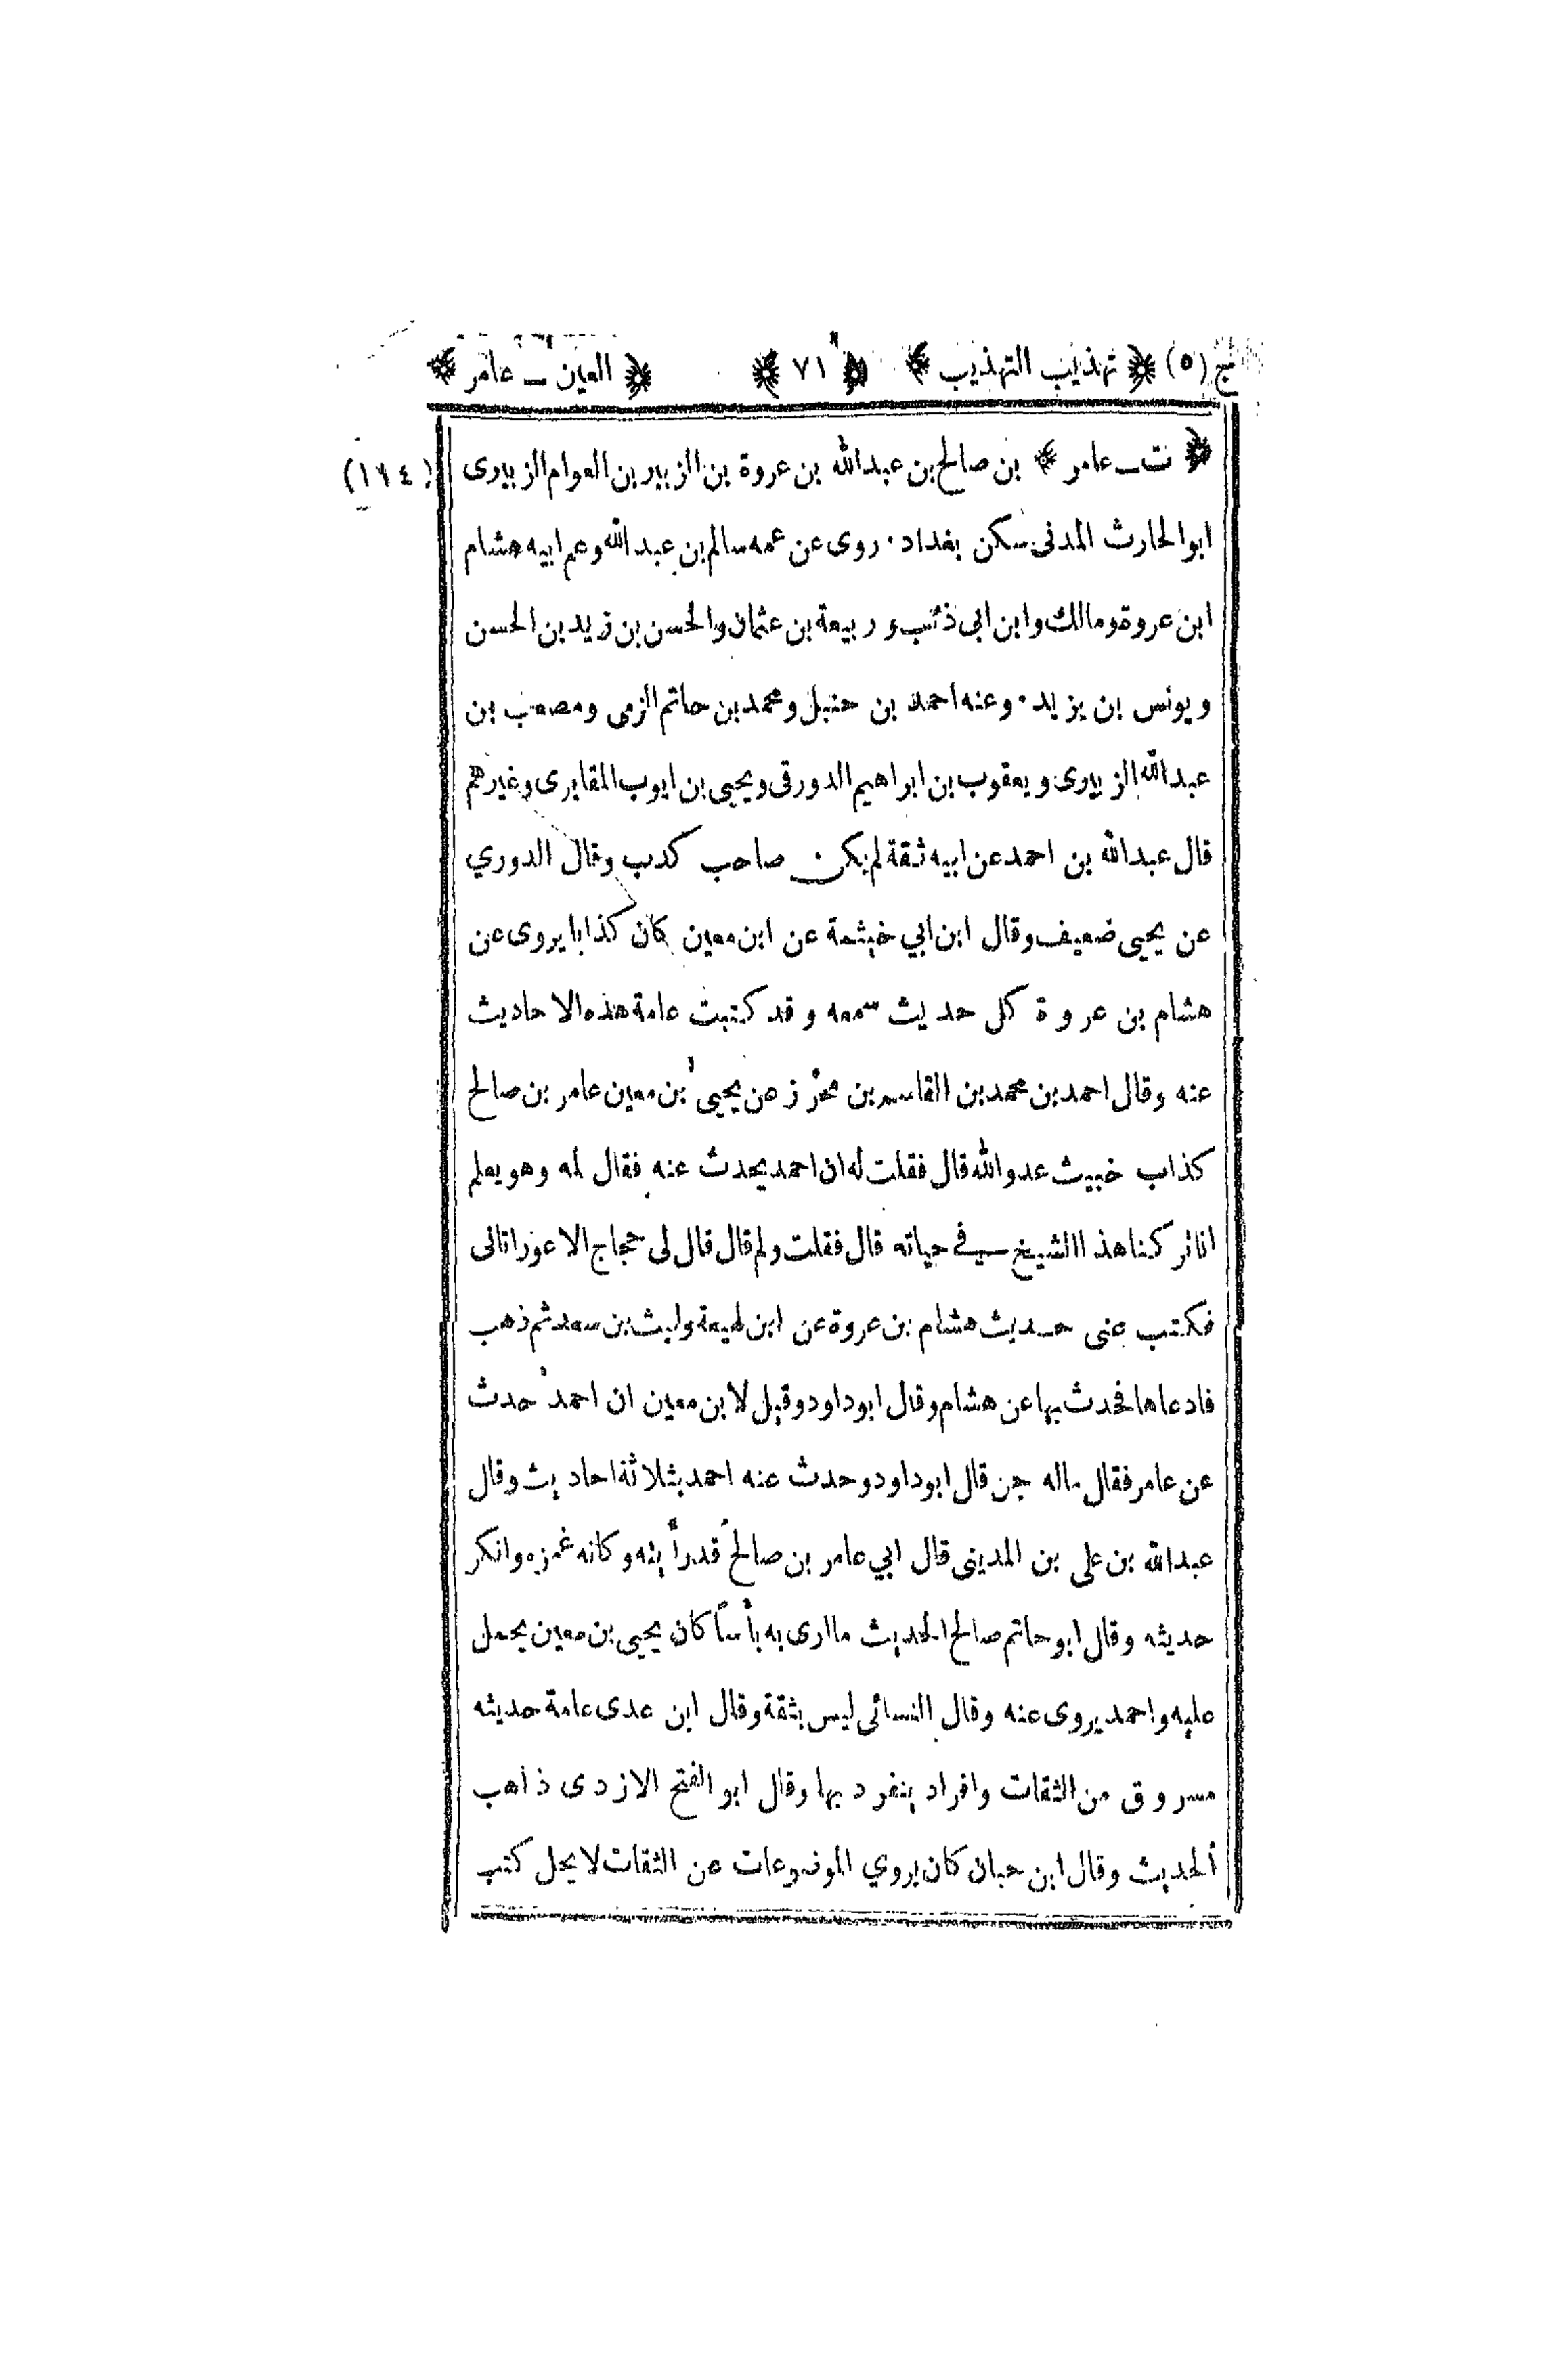 ج (٥) ﴿ تهذيب التهذيب ﴾ ﴿ ٧١ ﴾ ﴿ العين ــ عامر ﴾
﴿ ت ــ عامر ﴾ بن صالح بن عبدالله بن عروة بن الزبير بن العوام الزبيرى (١٢٤)
ابو الحارث المدنى سكن بغداد · روى عن عمه سالم بن عبد الله وعم ابيه هشام
ابن عروة ومالك وابن ابى ذئب وربيعة بن عثمان والحسن بن زيد بن الحسن
ويونس بن يزيد · وعنه احمد بن حنبل ومحمد بن حاتم الزمى ومصعب بن
عبدالله الزبيرى ويعقوب بن ابراهيم الدورقى ويحيى بن ايوب المقابرى وغيرهم
قال عبدالله بن احمد عن ابيه ثقة لم يكن صاحب كذب وقال الدوري
عن يحيى ضعيف وقال ابن ابي خيثمة عن ابن معين كان كذابا يروى عن
هشام بن عروة كل حديث سمعه وقد كتبت عامة هذه الاحاديث
عنه وقال احمد بن محمد بن القاسم بن محرز عن يحيى بن معين عامر بن صالح
كذاب خبيث عدو الله قال فقلت له ان احمد يحدث عنه فقال لمه وهو يعلم
انا تركنا هذا الشيخ في حياته قال فقلت ولم قال قال لى حجاج الاعور اتانى
فكتب عنى حديث هشام بن عروة عن ابن لهيعة وليث بن سعد ثم ذهب
فادعاها فحدث بها عن هشام وقال ابو داود وقيل لابن معين ان احمد حدث
عن عامر فقال ماله جن قال ابو داود وحدث عنه احمد بثلاثة احاديث وقال
عبدالله بن على بن المدينى قال ابي عامر بن صالح قد رأيته وكانه غمزه وانكر
حديثه وقال ابو حاتم صالح الحديث ما ارى به بأساً كان يحيى بن معين يحمل
عليه واحمد يروى عنه وقال النسائى ليس بثقة وقال ابن عدى عامة حديثه
مسروق من الثقات وافراد ينفرد بها وقال ابو الفتح الازدى ذاهب
الحديث وقال ابن حبان كان يروي الموضوعات عن الثقات لا يحل كتب